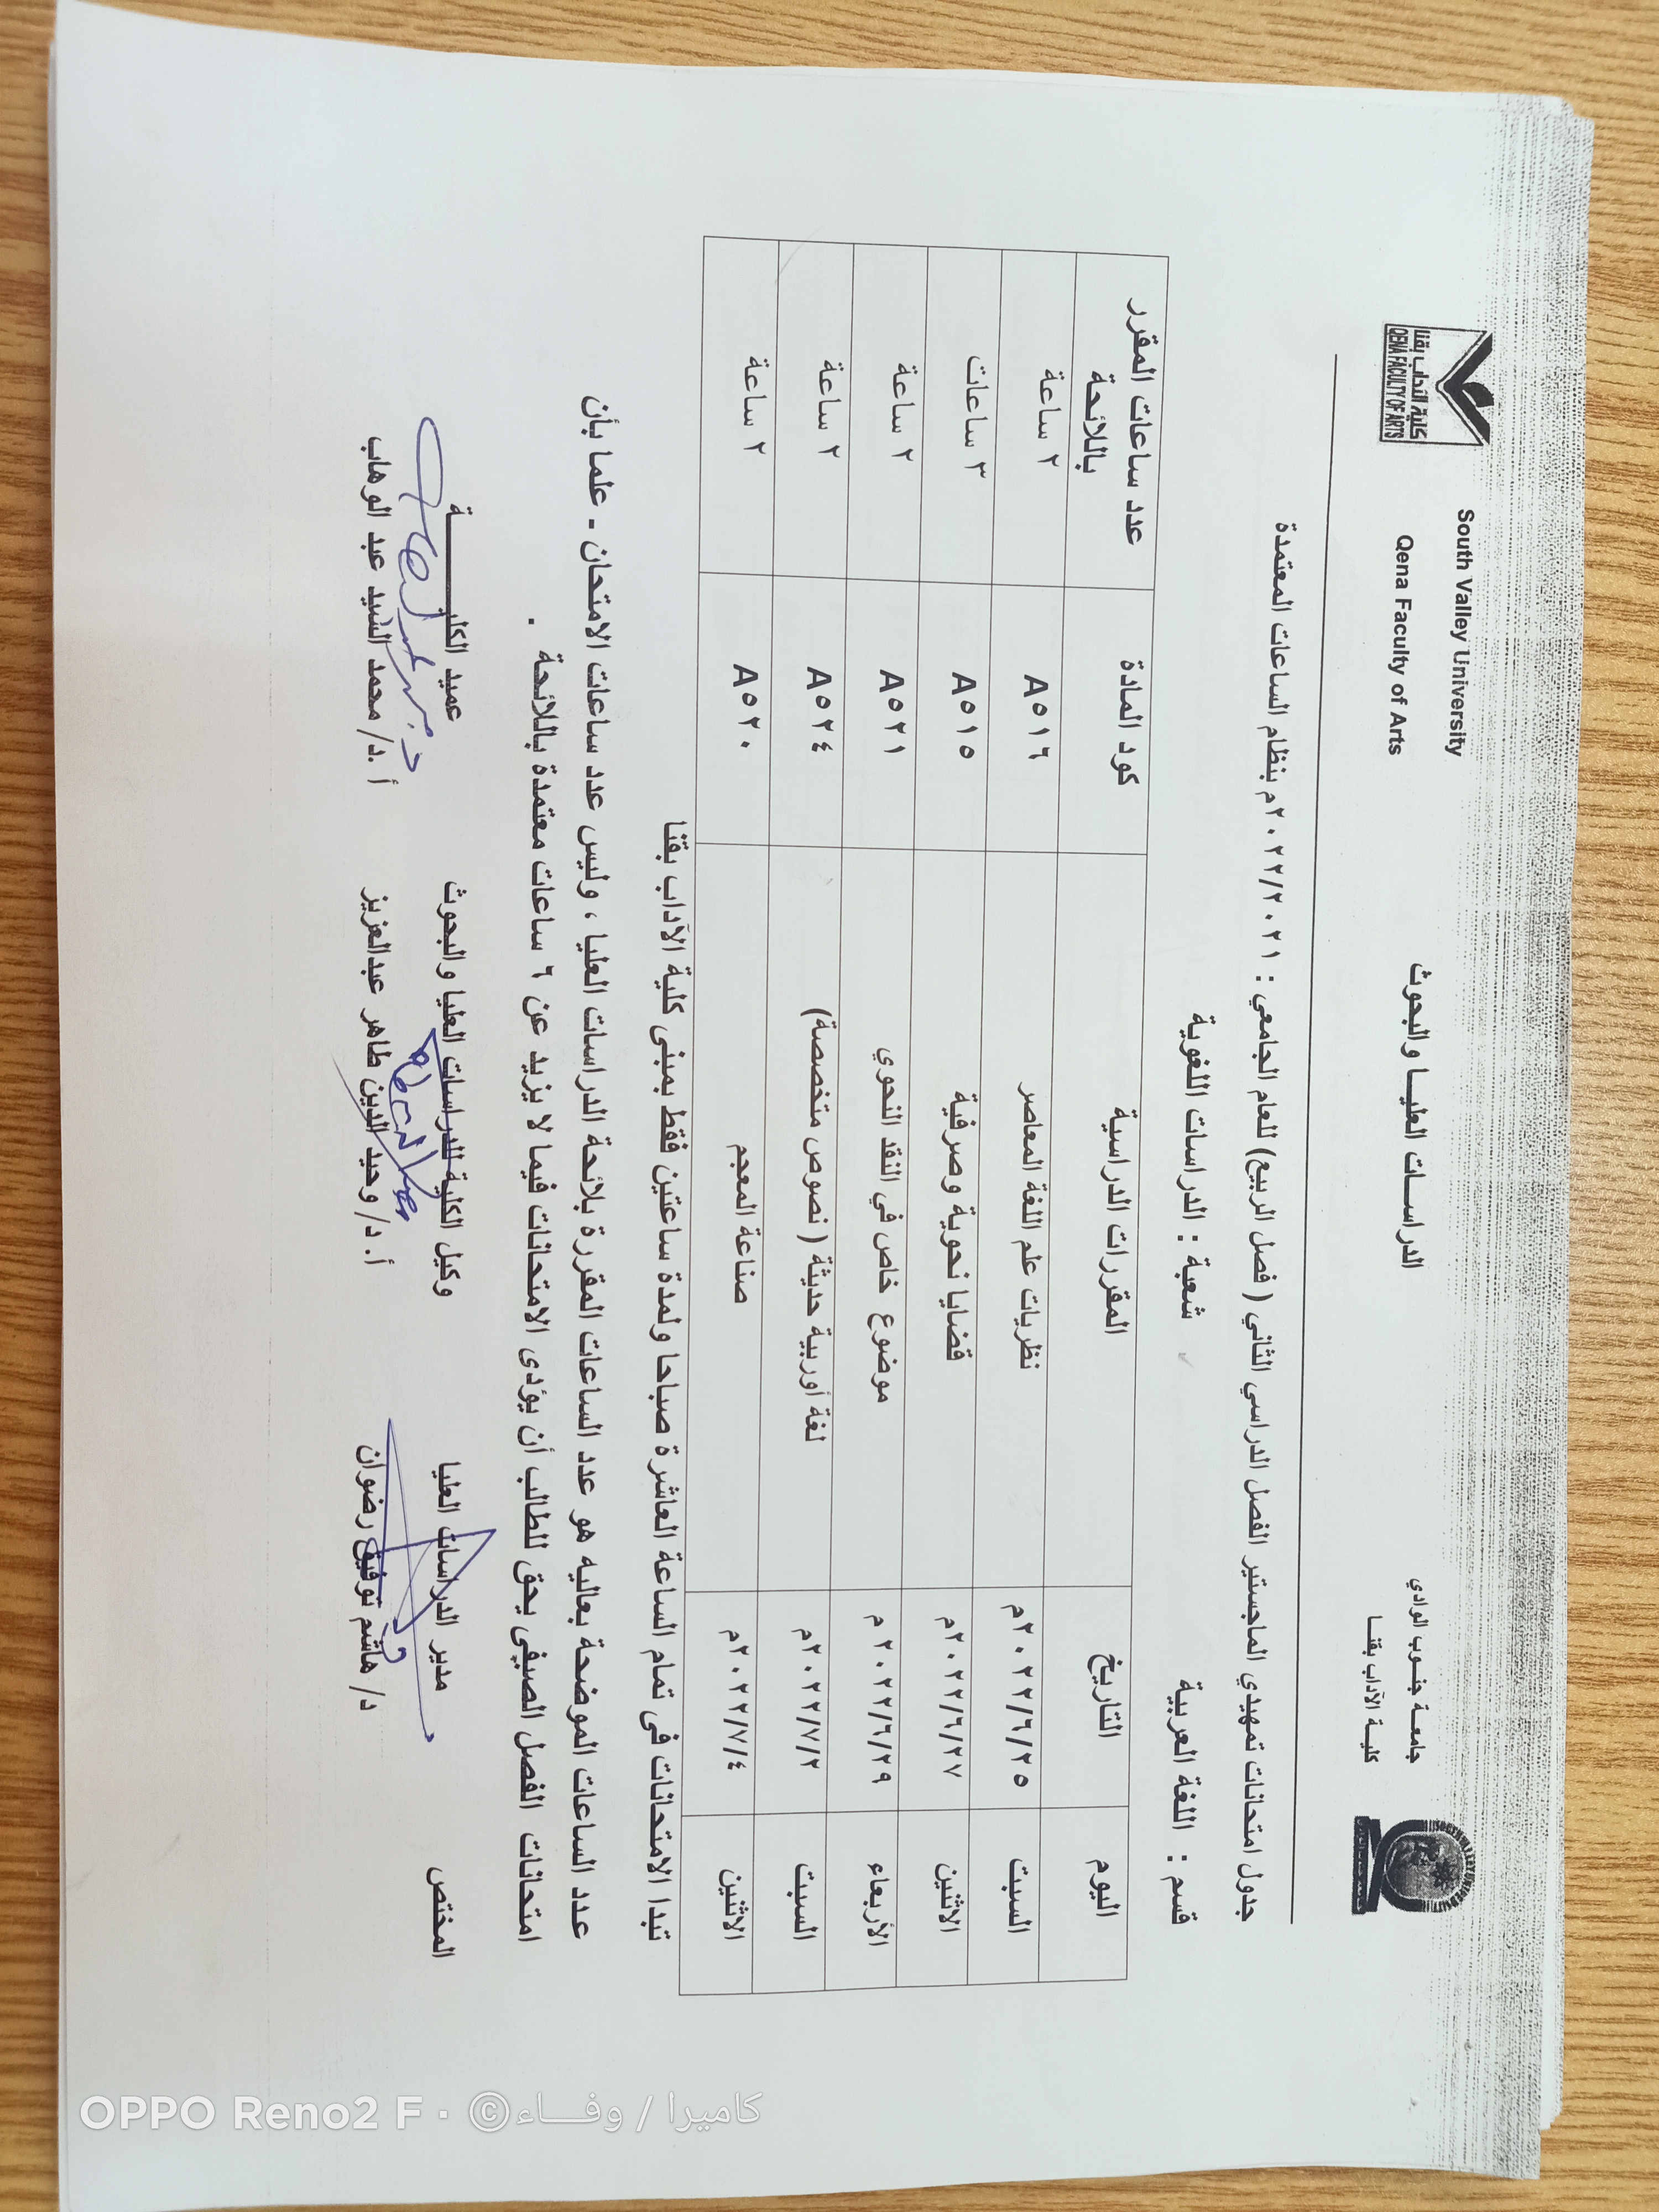 South Valley University
Qena Faculty of Arts
الدراسات العليا والبحوث
جامعة جنوب الوادي
كلية الآداب بقنا
كلية الآداب بقنا
QENA FACULTY OF ARTS
جدول امتحانات تمهيدي الماجستير الفصل الدراسي الثاني ( فصل الربيع) للعام الجامعي : ٢٠٢٢/٢٠٢١م بنظام الساعات المعتمدة
قسم : اللغة العربية شعبة : الدراسات اللغوية
اليوم التاريخ المقررات الدراسية كود المادة عدد ساعات المقرر باللائحة
السبت ٢٠٢٢/٦/٢٥م نظريات علم اللغة المعاصر A٥١٦ ٢ ساعة
الاثنين ٢٠٢٢/٦/٢٧م قضايا نحوية وصرفية A٥١٥ ٣ ساعات
الأربعاء ٢٠٢٢/٦/٢٩م موضوع خاص في النقد النحوي A٥٢١ ٢ ساعة
السبت ٢٠٢٢/٧/٢م لغة أوربية حديثة ( نصوص متخصصة) A٥٢٤ ٢ ساعة
الاثنين ٢٠٢٢/٧/٤م صناعة المعجم A٥٢٠ ٢ ساعة
تبدا الامتحانات فى تمام الساعة العاشرة صباحا ولمدة ساعتين فقط بمبنى كلية الآداب بقنا
عدد الساعات الموضحة بعاليه هو عدد الساعات المقررة بلائحة الدراسات العليا ، وليس عدد ساعات الامتحان - علما بأن
امتحانات الفصل الصيفى يحق للطالب أن يؤدى الامتحانات فيما لا يزيد عن ٦ ساعات معتمدة باللائحة .
المختص مدير الدراسات العليا وكيل الكلية للدراسات العليا والبحوث عميد الكلية
د/ هاشم توفيق رضوان أ. د/ وحيد الدين طاهر عبدالعزيز أ .د/ محمد السيد عبد الوهاب
OPPO Reno2 F · ©كاميرا / وفـــاء